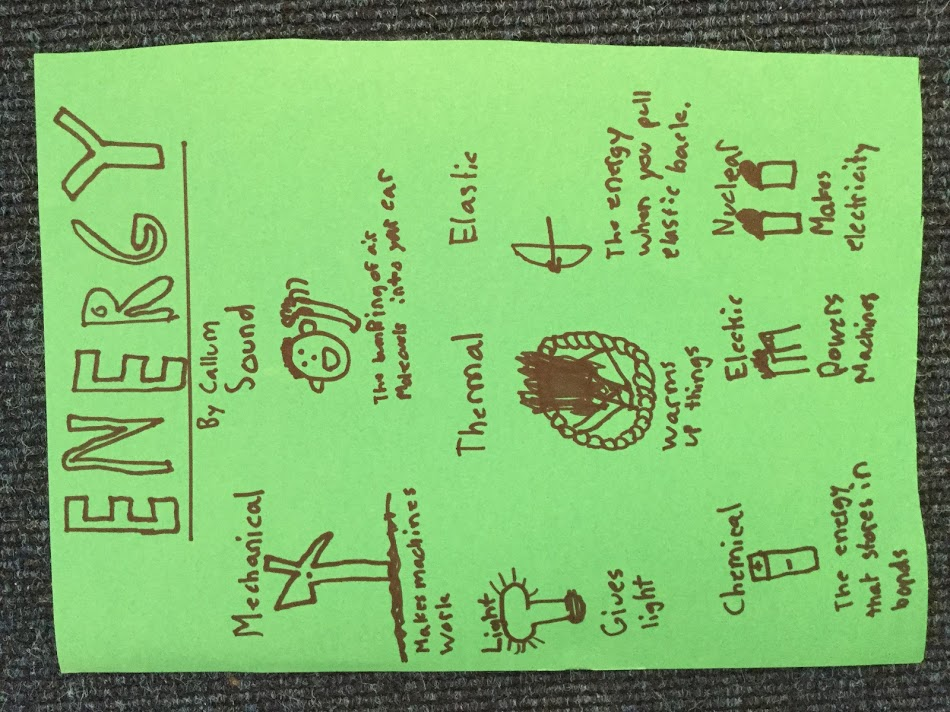 ENERGY
By Callum
Mechanical
Makes machines
work
Sound
The bumping of air
into your ear
Light
Gives
light
Thermal
warms
up things
Elastic
The energy
when you pull
elastic back.
Chemical
+
-
The energy
that stores in
bonds
Electric
Powers
Machines
Nuclear
Makes
electricity